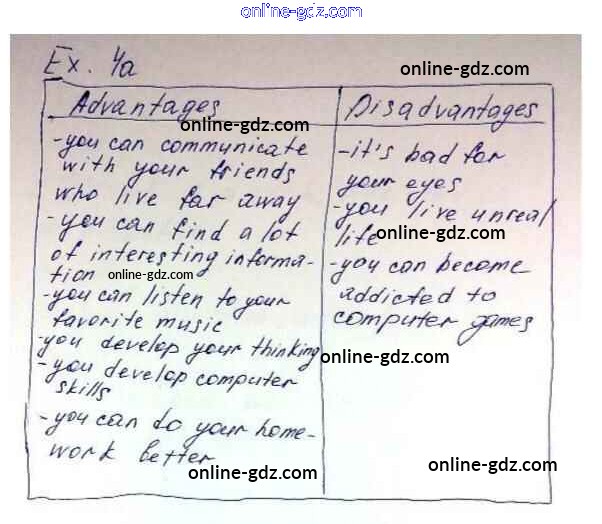 online-gdz.com
Ex. 4a
online-gdz.com
Advantages
online-gdz.com
-you can communicate
with your friends
who live far away
-you can find a lot
of interesting informa-
tion
online-gdz.com
-you can listen to your
favorite music
-you develop your thinking
-you develop computer
skills
-you can do your home-
work better
online-gdz.com
Disadvantages
-it's bad for
your eyes
-you live unreal
life
online-gdz.com
-you can become
addicted to
computer games
online-gdz.com
online-gdz.com